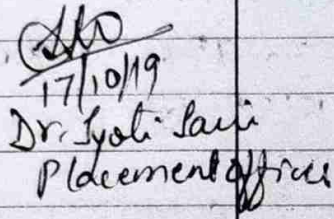 17/10/19
Dr. Jyoti Saini
Placement Officer